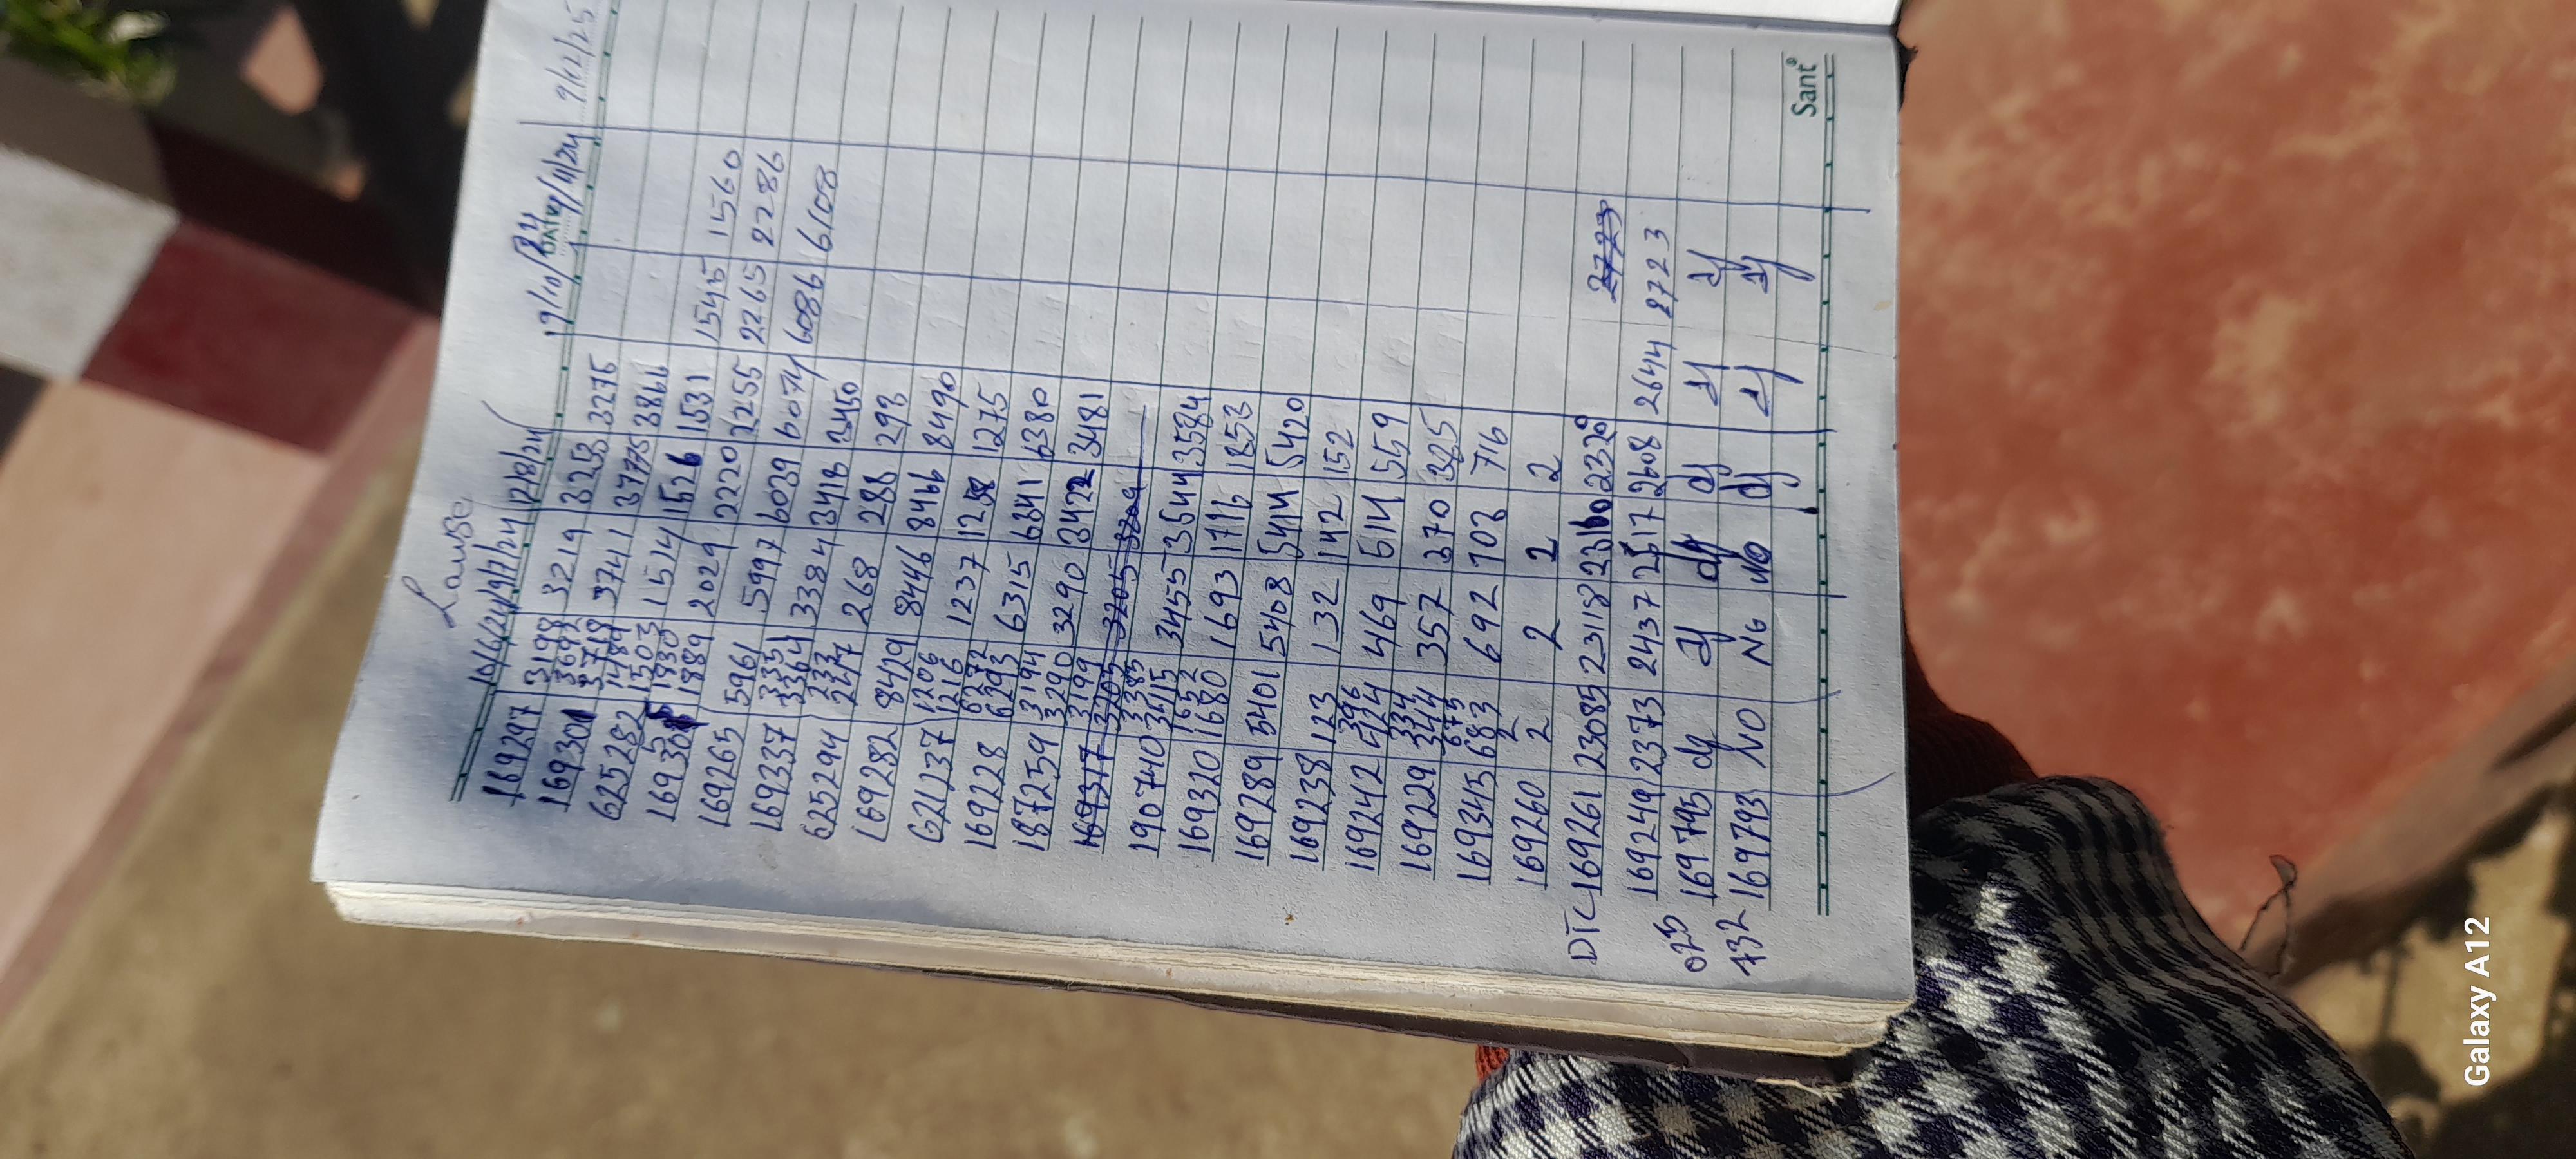 Lause
DATE
10/6/24 9/7/24 12/8/24 9/12/25
169297 3198 3219 3253 3275
169301 3692 3741 3775 3866
625282 3718 1514 1526 1531 1545 1560
1489 1503
16930 1830 1889 2029 2220 2255 2265 2286
169265 5961 5997 6039 6074 6086 6108
169337 3351 3364 3384 3418 3450
625294 233 247 268 288 293
169282 8429 8446 8466 8490
621237 1206 1216 1237 1258 1275
169228 6272 6293 6315 6341 6380
187259 3194 3290 3290 3422 3481
169317 3199 3205 3205 3204
190740 3385 3415 3455 3544 3584
169320 1652 1680 1693 1716 1853
169289 5401 5408 5414 5420
169238 123 132 142 152
169242 396 424 469 514 559
169229 334 344 357 370 385
169345 675 683 692 703 716
169260 2 2 2 2 2
DTC 169261 23085 23118 23160 2320
2723
169249 2373 2437 2517 2608 2644 2723
025 169795 dy dy dy dy dy dy
732 169793 NO No No dy dy dy
Sant
Galaxy A12